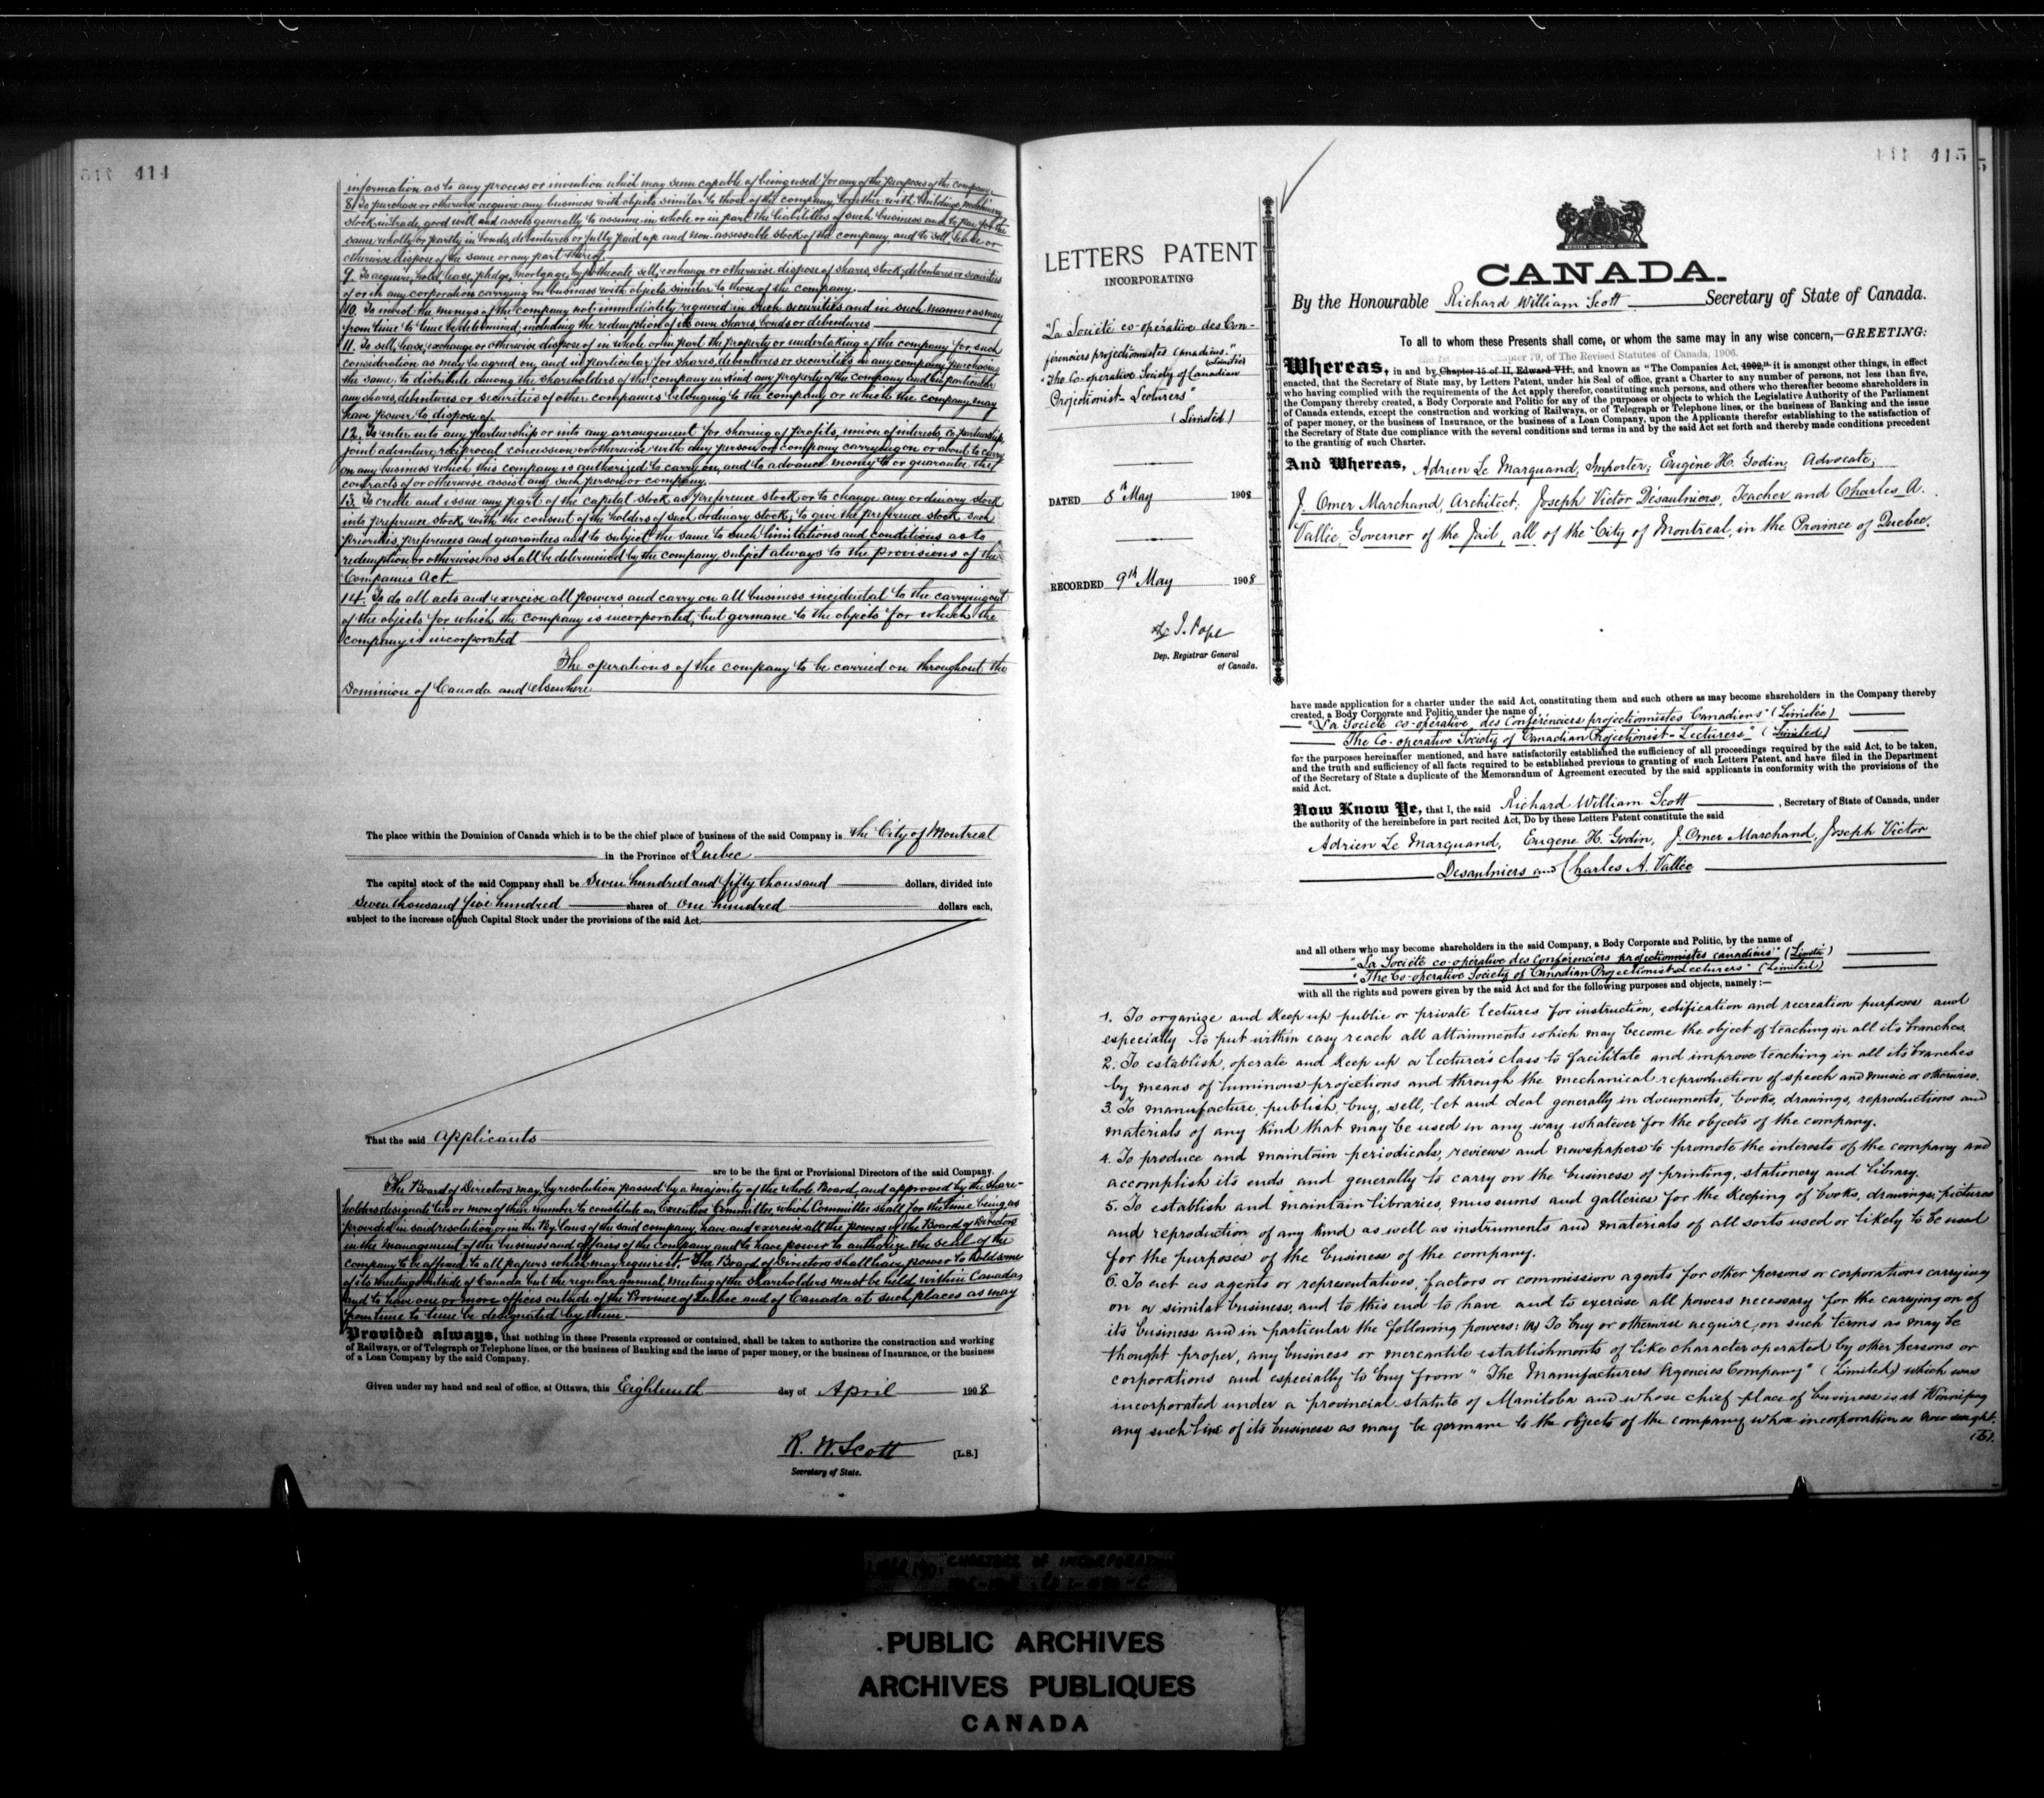 414
information as to any process or invention which may seem capable of being used for any of the purposes of the company.
8. To purchase or otherwise acquire any business with objects similar to those of the company together with buildings, machinery,
stock in trade, good will and assets generally to assume in whole or in part the liabilities of such business and to pay for the
same wholly or partly in bonds, debentures or fully paid up and non-assessable stock of the company, and to sell, lease or
otherwise dispose of the same or any part thereof.
9. To acquire, hold, lease, pledge, mortgage, hypothecate, sell, exchange or otherwise dispose of shares, stock, debentures or securities
of or in any corporation carrying on business with objects similar to those of the company.
10. To invest the moneys of the company not immediately required in such securities and in such manner as may
from time to time be determined, including the redemption of its own shares, bonds or debentures.
11. To sell, lease, exchange or otherwise dispose of in whole or in part the property or undertaking of the company for such
consideration as may be agreed on, and in particular for shares, debentures or securities in any company purchasing
the same; to distribute among the shareholders of the company in kind any property of the company and in particular
any shares, debentures or securities of other companies belonging to the company or which the company may
have power to dispose of.
12. To enter into any partnership or into any arrangement for sharing of profits, union of interests, co-partnership,
joint adventure, reciprocal concession or otherwise with any person or company carrying on or about to carry
on any business which this company is authorized to carry on, and to advance money to or guarantee the
contracts of or otherwise assist any such person or company.
13. To create and issue any part of the capital stock as preference stock or to change any ordinary stock
into preference stock with the consent of the holders of such ordinary stock; to give the preference stock such
priorities, preferences and guarantees and to subject the same to such limitations and conditions as to
redemption or otherwise as shall be determined by the company, subject always to the provisions of the
Companies Act.
14. To do all acts and exercise all powers and carry on all business incidental to the carrying out
of the objects for which the company is incorporated, but germane to the objects for which the
company is incorporated
The operations of the company to be carried on throughout the
Dominion of Canada and elsewhere.
The place within the Dominion of Canada which is to be the chief place of business of the said Company is the City of Montreal
in the Province of Quebec
The capital stock of the said Company shall be Seven hundred and fifty thousand dollars, divided into
Seven thousand five hundred shares of One hundred dollars each,
subject to the increase of such Capital Stock under the provisions of the said Act.
That the said applicants
are to be the first or Provisional Directors of the said Company.
The Board of Directors may, by resolution passed by a majority of the whole Board, and approved by the share-
holders designate two or more of their number to constitute an Executive Committee, which Committee shall for the time being as
provided in said resolution or in the By-laws of the said company, have and exercise all the powers of the Board of Directors
in the management of the business and affairs of the company and to have power to authorize the seal of the
company to be affixed to all papers which may require it. The Board of Directors shall have power to hold some
of its meetings outside of Canada but the regular annual meeting of the shareholders must be held within Canada,
and to have one or more offices outside of the Province of Quebec and of Canada at such places as may
from time to time be designated by them.
Provided always, that nothing in these Presents expressed or contained, shall be taken to authorize the construction and working
of Railways, or of Telegraph or Telephone lines, or the business of Banking and the issue of paper money, or the business of Insurance, or the business
of a Loan Company by the said Company.
Given under my hand and seal of office, at Ottawa, this Eighteenth day of April 1908
R. W. Scott [L.S.]
Secretary of State.
415
LETTERS PATENT
INCORPORATING
"La Société co-opérative des Con-
férenciers projectionnistes Canadiens."
Limitée
"The Co-operative Society of Canadian
Projectionist-Lecturers"
(Limited)
DATED 8th May 1908
RECORDED 9th May 1908
J. Pope
Dep. Registrar General
of Canada.
CANADA.
By the Honourable Richard William Scott Secretary of State of Canada.
To all to whom these Presents shall come, or whom the same may in any wise concern,—GREETING:
Chapter 79, of The Revised Statutes of Canada, 1906.
Whereas, in and by Chapter 15 of II, Edward VII, and known as "The Companies Act, 1902," it is amongst other things, in effect
enacted, that the Secretary of State may, by Letters Patent, under his Seal of office, grant a Charter to any number of persons, not less than five,
who having complied with the requirements of the Act apply therefor, constituting such persons, and others who thereafter become shareholders in
the Company thereby created, a Body Corporate and Politic for any of the purposes or objects to which the Legislative Authority of the Parliament
of Canada extends, except the construction and working of Railways, or of Telegraph or Telephone lines, or the business of Banking and the issue
of paper money, or the business of Insurance, or the business of a Loan Company, upon the Applicants therefor establishing to the satisfaction of
the Secretary of State due compliance with the several conditions and terms in and by the said Act set forth and thereby made conditions precedent
to the granting of such Charter.
And Whereas, Adrien Le Marquand, Importer; Eugène H. Godin, Advocate;
J. Omer Marchand, Architect; Joseph Victor Désaulniers, Teacher and Charles A.
Vallée, Governor of the Jail, all of the City of Montreal, in the Province of Quebec.
have made application for a charter under the said Act, constituting them and such others as may become shareholders in the Company thereby
created, a Body Corporate and Politic under the name of
"La Société co-operative des Conférenciers projectionnistes Canadiens" (Limitée)
The Co-operative Society of Canadian Projectionist-Lecturers" (Limited)
for the purposes hereinafter mentioned, and have satisfactorily established the sufficiency of all proceedings required by the said Act, to be taken,
and the truth and sufficiency of all facts required to be established previous to granting of such Letters Patent, and have filed in the Department
of the Secretary of State a duplicate of the Memorandum of Agreement executed by the said applicants in conformity with the provisions of the
said Act.
Now Know Ye, that I, the said Richard William Scott, Secretary of State of Canada, under
the authority of the hereinbefore in part recited Act, Do by these Letters Patent constitute the said
Adrien Le Marquand, Eugene H. Godin, J. Omer Marchand, Joseph Victor
Desaulniers and Charles A. Vallée
and all others who may become shareholders in the said Company, a Body Corporate and Politic, by the name of
"La Société co-opérative des Conférenciers projectionnistes canadiens" (Limitée)
"The Co-operative Society of Canadian Projectionist-Lecturers" (Limited)
with all the rights and powers given by the said Act and for the following purposes and objects, namely:—
1. To organize and keep up public or private lectures for instruction, edification and recreation purposes and
especially to put within easy reach all attainments which may become the object of teaching in all its branches.
2. To establish, operate and keep up a lecturer's class to facilitate and improve teaching in all its branches
by means of luminous projections and through the mechanical reproduction of speech and music or otherwise.
3. To manufacture, publish, buy, sell, let and deal generally in documents, books, drawings, reproductions and
materials of any kind that may be used in any way whatever for the objects of the company.
4. To produce and maintain periodicals, reviews and newspapers to promote the interests of the company and
accomplish its ends and generally to carry on the business of printing, stationery and library.
5. To establish and maintain libraries, museums and galleries for the keeping of books, drawings, pictures
and reproduction of any kind as well as instruments and materials of all sorts used or likely to be used
for the purposes of the business of the company.
6. To act as agents or representatives, factors or commission agents for other persons or corporations carrying
on a similar business, and to this end to have and to exercise all powers necessary for the carrying on of
its business and in particular the following powers: (a) To buy or otherwise acquire, on such terms as may be
thought proper, any business or mercantile establishments of like character operated by other persons or
corporations and especially to buy from "The Manufacturers Agencies Company" (Limited) which was
incorporated under a provincial statute of Manitoba and whose chief place of business is at Winnipeg
any such line of its business as may be germane to the objects of the company whose incorporation is now sought.
(b).
CHARTERS OF INCORPORATION
PUBLIC ARCHIVES
ARCHIVES PUBLIQUES
CANADA